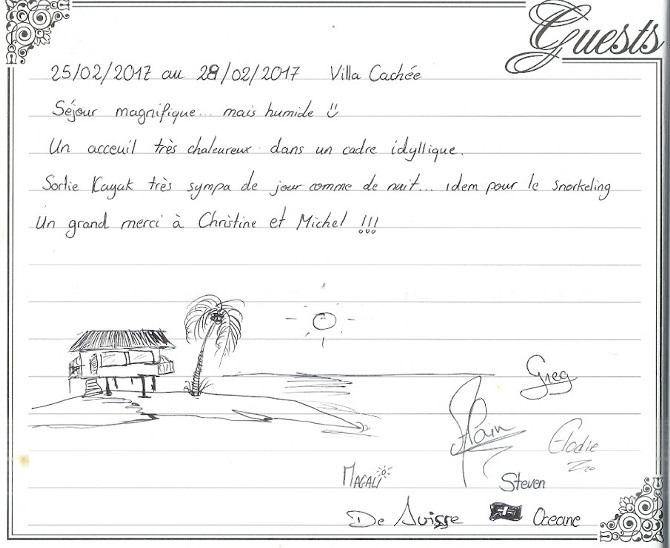 Guests
25/02/2017 au 28/02/2017 Villa Cachée
Séjour magnifique... mais humide
Un acceuil très chaleureux dans un cadre idyllique.
Sortie Kayak très sympa de jour comme de nuit... idem pour le snorkeling
Un grand merci à Christine et Michel !!!
Greg
Elodie
Magali
Steven
De Suisse
Oceane